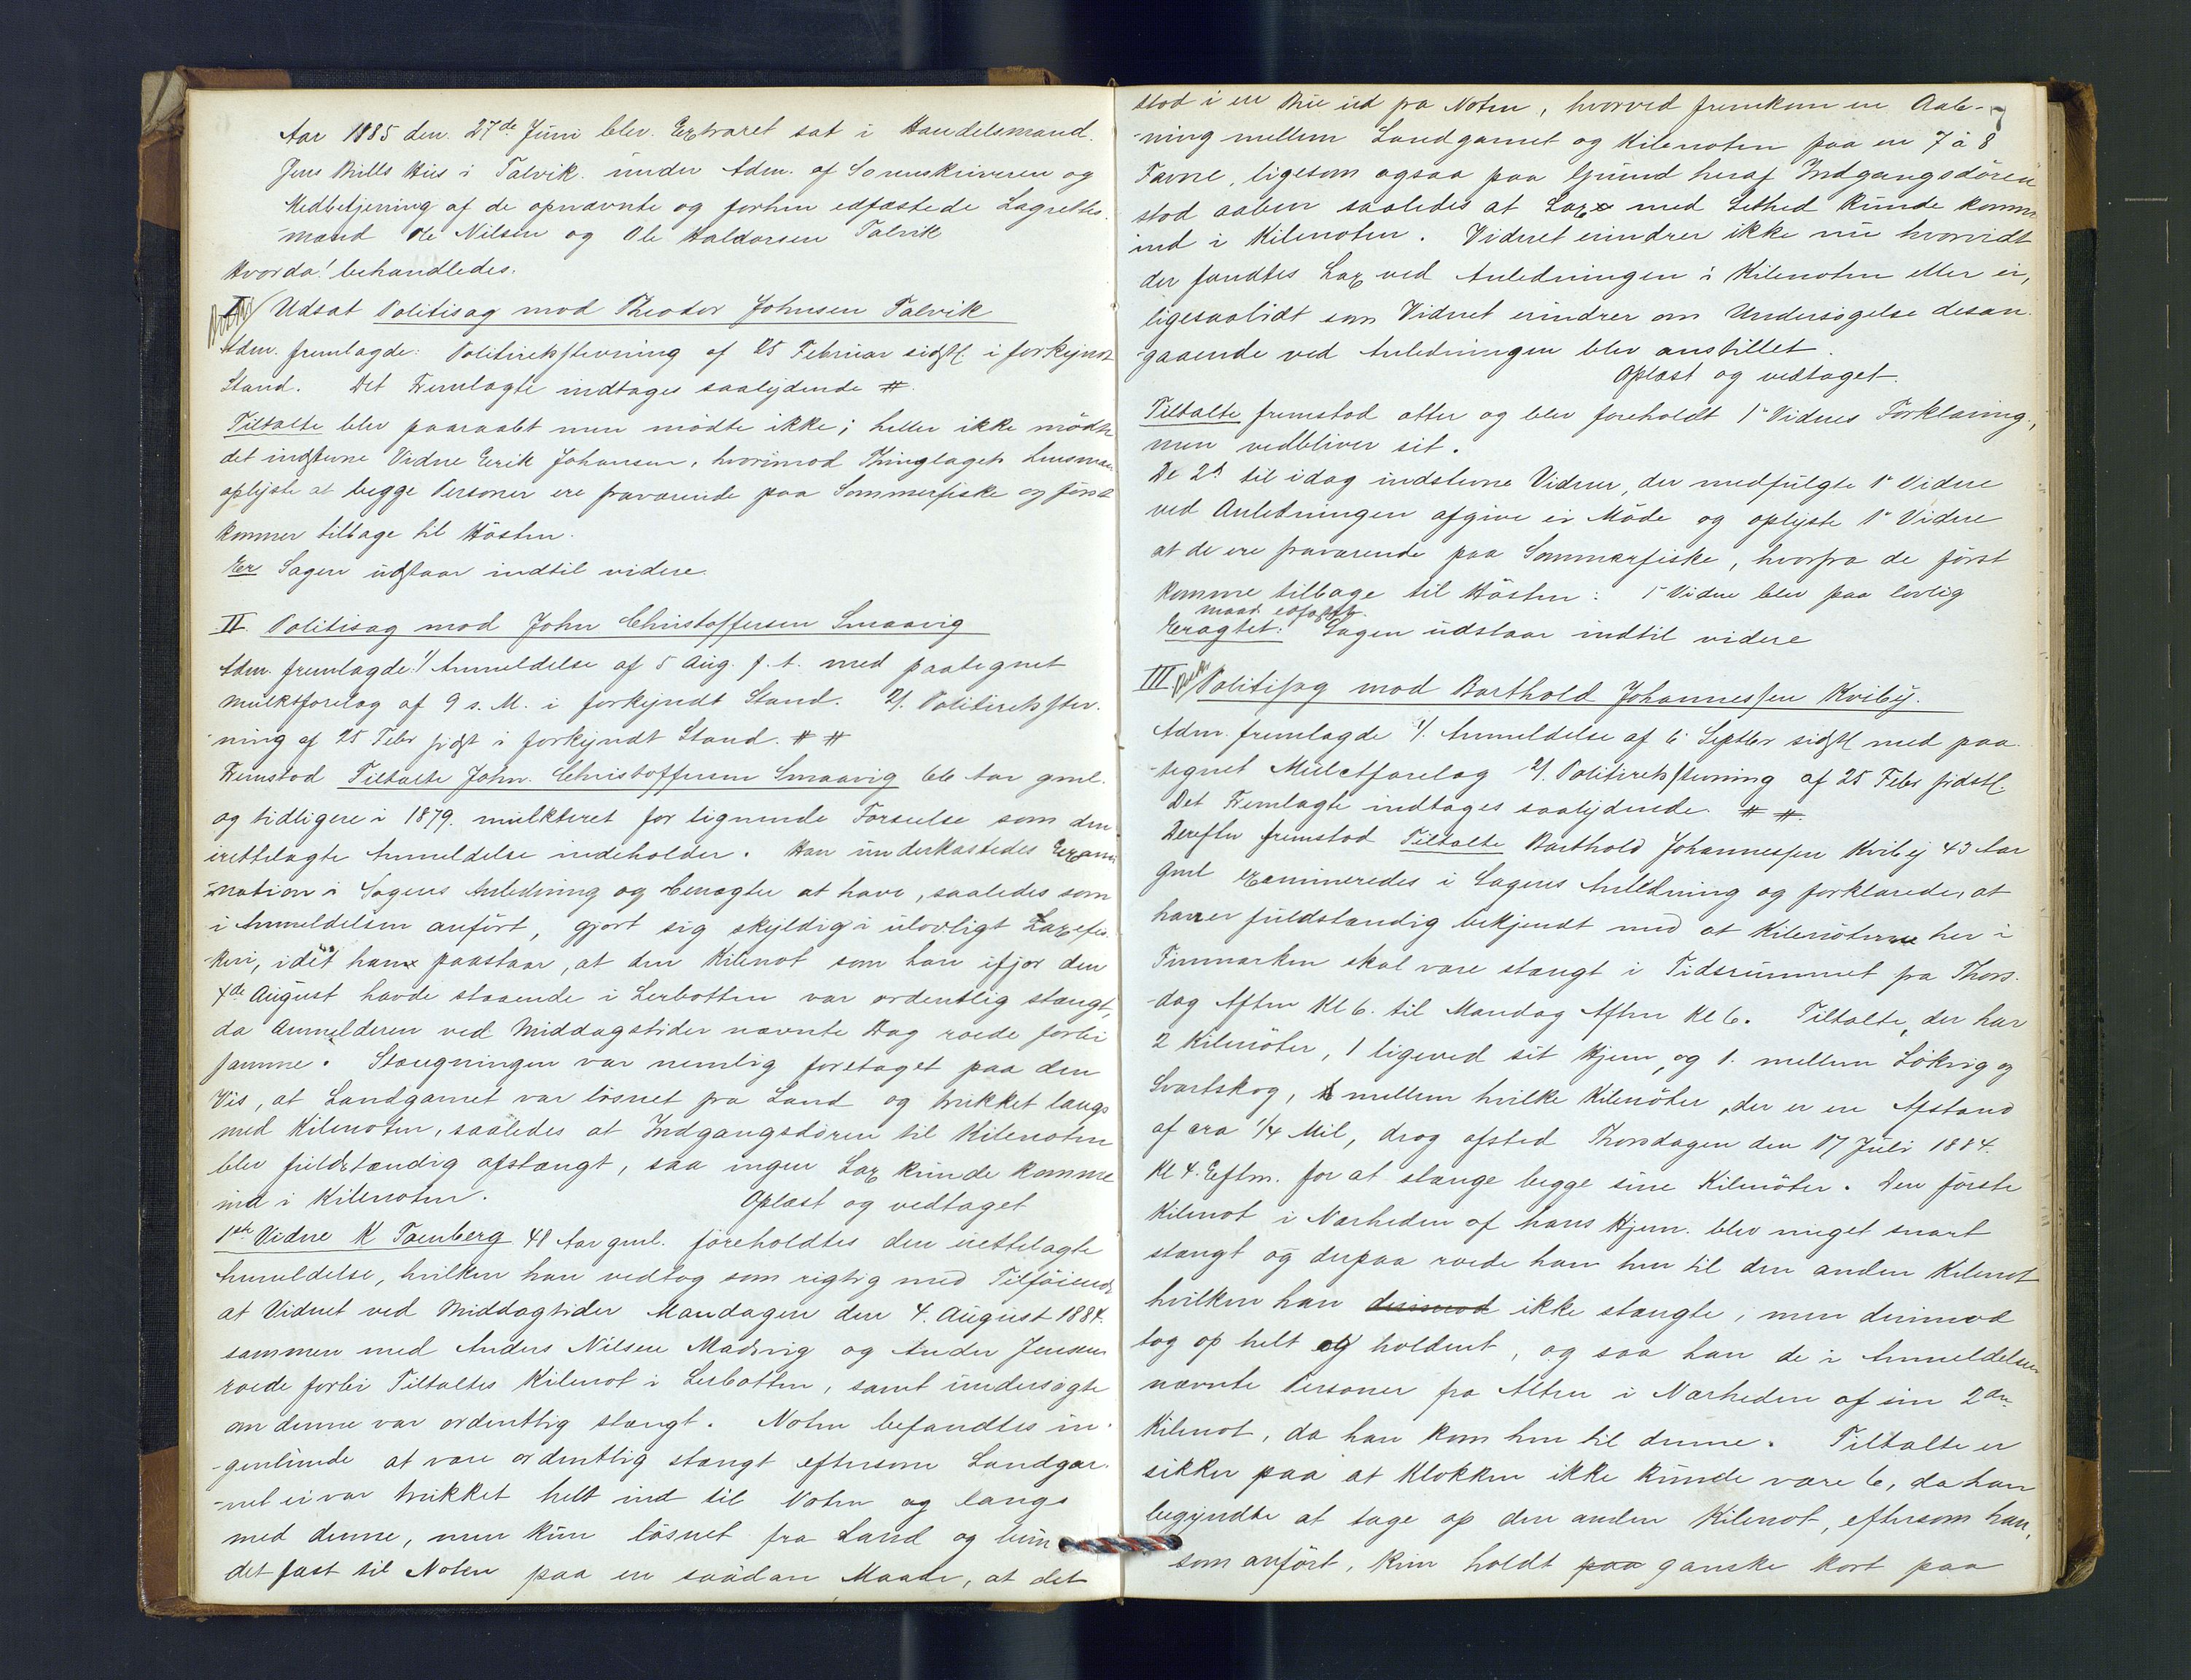 Aar 1885 den 27de Juni blev Extraret sat i Handelsmand
Jens Bulls Hus i Talvik under Adm. af Sorenskriveren og
Medbetjening af de opnævnte og forhen edfæstede Lagrettes-
mænd Ole Nilsen og Ole Haldorsen Talvik
Hvorda! behandledes.
I Udsat Politisag mod Theodor Johnsen Talvik
Adm. fremlagde: Politiretsstevning af 25 Februar sidstl. i forkyndt
Stand. Det Fremlagte indtages saalydende #.
Tiltalte blev paaraabt men mödte ikke; heller ikke mödte
det indstevne Vidne Erik Johansen, hvorimod Thinglagets Lensmand
oplyste at begge Personer ere fraværende paa Sommerfiske og först
kommer tilbage til Hösten.
Er Sagen udstaar indtil videre.
II. Politisag mod John Christoffersen Smaavig
Adm. fremlagde: 1/ Anmeldelse af 5 Aug. f. A. med paategnet
Mulktforelæg af 9 s. M. i forkyndt Stand. 2/. Politiretsstev-
ning af 25 Febr sidst i forkyndt Stand. # #
Fremstod Tiltalte John Christoffersen Smaavig 66 Aar gml.
og tidligere i 1879 mulkteret for lignende Forseelse som den
irettelagte Anmeldelse indeholder. Han underkastedes Exami-
-nation i Sagens Anledning og benægter at have, saaledes som
i Anmeldelsen anfört, gjort sig skyldig i ulovligt Laxefis-
keri, idet han paastaar, at den Kilenot som han ifjor den
4de August havde staaende i Lerbotten var ordentlig stængt,
da Anmelderen ved Middagstider nævnte Dag roede forbi
samme. Stængningen var nemlig foretaget paa den
Vis, at Landgarnet var lösnet fra Land og trukket langs
med Kilenoten, saaledes at Indgangsdören til Kilenoten
blev fuldstændig afstængt, saa ingen Lax kunde komme
ind i Kilenoten. Oplæst og vedtaget
1ste Vidne K Tomberg 48 Aar gml. foreholdtes den irettelagte
Anmeldelse, hvilken han vedtog som rigtig med Tilföiende
at Vidnet ved Middagtider Mandagen den 4. August 1884.
sammen med Anders Nilsen Madsvig og Anders Jensen
roede forbi Tiltaltes Kilenot i Lerbotten, samt undersögte
om denne var ordentlig stængt. Noten befandtes in-
-genlunde at være ordentlig stængt eftersom Landgar-
-net ei var trukket helt ind til Noten og langs
med denne, men kun lösnet fra Land og bun-
det fast til Noten paa en saadan Maade, at det
stod i en Bue ud fra Noten, hvorved fremkom en Aab- 7
-ning mellem Landgarnet og Kilenoten paa en 7 à 8
Favne, ligesom ogsaa paa Grund heraf Indgangsdören
stod aaben saaledes at Lax med Lethed kunde komme
ind i Kilenoten. Vidnet erindrer ikke nu hvorvidt
der fandtes Lax ved Anledningen i Kilenoten eller ei,
ligesaalidt som Vidnet erindrer om Undersögelse desan-
-gaaende ved Anledningen blev anstillet.
Oplæst og vedtaget.
Tiltalte fremstod atter og blev foreholdt 1e Vidnes Forklaring,
men vedbliver sit.
De 2de til idag indstevne Vidner, der medfulgte 1e Vidne
ved Anledningen afgive ei Möde og oplyste 1e Vidne
at de ere fraværende paa Sommerfiske, hvorfra de först
komme tilbage til Hösten: 1e Vidne blev paa lovlig
Maade edfæstet.
Eragtet: Sagen udstaar indtil videre
III Politisag mod Barthold Johannessen Kviby.
Adm. fremlagde 1/. Anmeldelse af 6 Septbr sidstl med paa-
-tegnet Mulctforelæg 2/. Politiretsstevning af 25 Febr sidstl.
Det Fremlagte indtages saalydende. # #.
Derefter fremstod Tiltalte Barthold Johannessen Kviby 43 Aar
gml examineredes i Sagens Anledning og forklarede, at
han er fuldstændig bekjendt med at Kilenöterne her i
Finmarken skal være stængt i Tidsrummet fra Thors-
-dag Aften Kl 6. til Mandag Aften Kl 6. Tiltalte, der har
2 Kilenöter, 1 ligeved sit Hjem, og 1. mellem Lökvig og
Svartskog, mellem hvilke Kilenöter, der er en Afstand
af cra 1/4 Mil, drog afsted Thorsdagen den 17 Juli 1884.
Kl 4. Eftm. for at stænge begge sine Kilenöter. Den förste
Kilenot i Nærheden af hans Hjem. blev meget snart
stængt og derpaa roede han hen til den anden Kilenot
hvilken han derimod ikke stængte, men derimod
tog op helt og holdent, og saa han de i Anmeldelsen
nævnte Personer fra Alten i Nærheden af sin 2den
Kilenot, da han kom hen til denne. Tiltalte er
sikker paa at Klokken ikke kunde være 6, da han
begyndte at tage op den anden Kilenot, eftersom han,
som anfört, kun holdt paa ganske kort paa